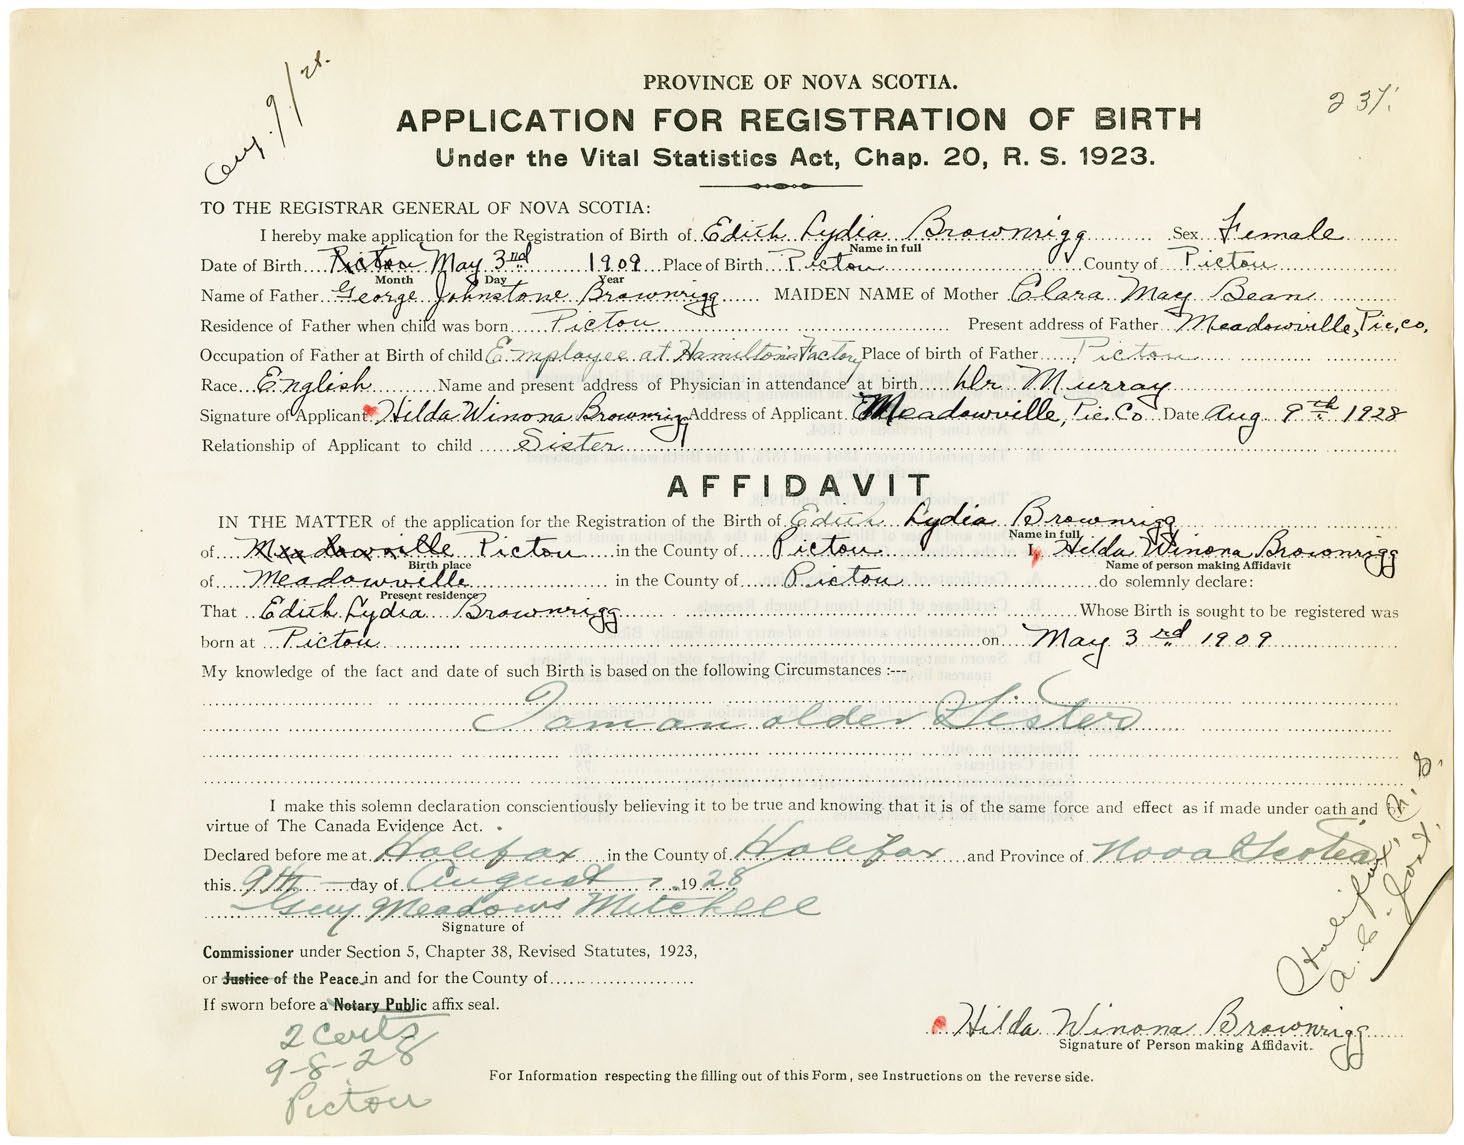 Aug. 9/28.
PROVINCE OF NOVA SCOTIA.
231.
APPLICATION FOR REGISTRATION OF BIRTH
Under the Vital Statistics Act, Chap. 20, R. S. 1923.
TO THE REGISTRAR GENERAL OF NOVA SCOTIA:
I hereby make application for the Registration of Birth of Edith Lydia Brownrigg Sex Female
Name in full
Date of Birth Pictou May 3rd 1909 Place of Birth Pictou County of Pictou
Month Day Year
Name of Father George Johnstone Brownrigg MAIDEN NAME of Mother Clara May Bean
Residence of Father when child was born Pictou Present address of Father Meadowville, Pic. Co.
Occupation of Father at Birth of child Employee at Hamilton's Factory Place of birth of Father Pictou
Race English Name and present address of Physician in attendance at birth Dr Murray
Signature of Applicant Hilda Winona Brownrigg Address of Applicant Meadowville, Pic. Co Date Aug 9th 1928
Relationship of Applicant to child Sister
AFFIDAVIT
IN THE MATTER of the application for the Registration of the Birth of Edith Lydia Brownrigg
Name in full
of Meadowville Pictou in the County of Pictou I, Hilda Winona Brownrigg
Birth place Name of person making Affidavit
of Meadowville in the County of Pictou do solemnly declare:
Present residence
That Edith Lydia Brownrigg Whose Birth is sought to be registered was
born at Pictou on May 3rd 1909
My knowledge of the fact and date of such Birth is based on the following Circumstances :—
I am an older Sister
I make this solemn declaration conscientiously believing it to be true and knowing that it is of the same force and effect as if made under oath and by
virtue of The Canada Evidence Act.
Declared before me at Halifax in the County of Halifax and Province of Nova Scotia
this 9th day of August 1928
Guy Meadows Mitchell
Signature of
Commissioner under Section 5, Chapter 38, Revised Statutes, 1923,
or Justice of the Peace in and for the County of
If sworn before a Notary Public affix seal.
Halifax, N. S.
A. C. Jost.
2 Certs
9-8-28
Pictou
Hilda Winona Brownrigg
Signature of Person making Affidavit.
For Information respecting the filling out of this Form, see Instructions on the reverse side.